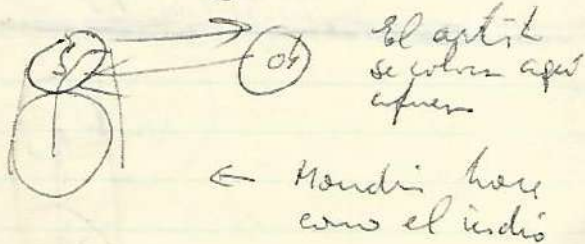 S
Ob
El artista
se coloca aquí
afuera
← Mondrian hace
como el indio